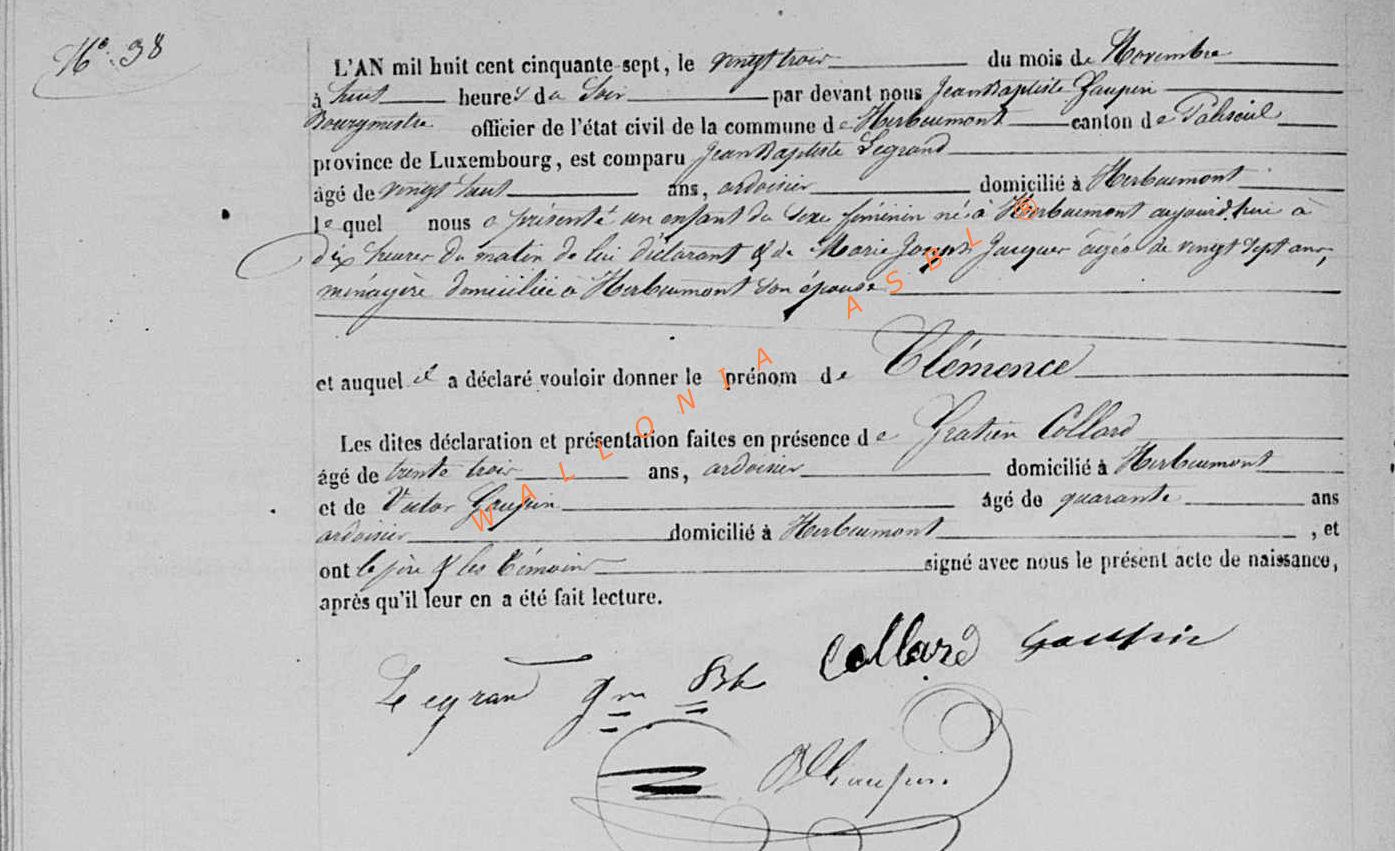 N° 38
L'AN mil huit cent cinquante-sept, le vingt trois du mois de Novembre
à huit heures du Soir par devant nous Jean Baptiste Gaupin
Bourgmestre officier de l'état civil de la commune de Herbeumont canton de Paliseul
province de Luxembourg, est comparu Jean Baptiste Legrand
âgé de vingt huit ans, ardoisier domicilié à Herbeumont
lequel nous a présenté un enfant du sexe féminin né à Herbeumont aujourd'hui à
dix heures du matin de lui déclarant & de Marie Joseph Jacques agée de vingt sept ans,
ménagère domiciliée à Herbeumont son épouse
et auquel il a déclaré vouloir donner le prénom de Clémence
Les dites déclaration et présentation faites en présence de Gratien Collard
âgé de trente trois ans, ardoisier domicilié à Herbeumont
et de Victor Gaupin âgé de quarante ans
ardoisier domicilié à Herbeumont, et
ont le père & les témoins signé avec nous le présent acte de naissance,
après qu'il leur en a été fait lecture.
Legrand Jn Bte Collard Gaupin
JB Gaupin
WALLONIA ASBL ®